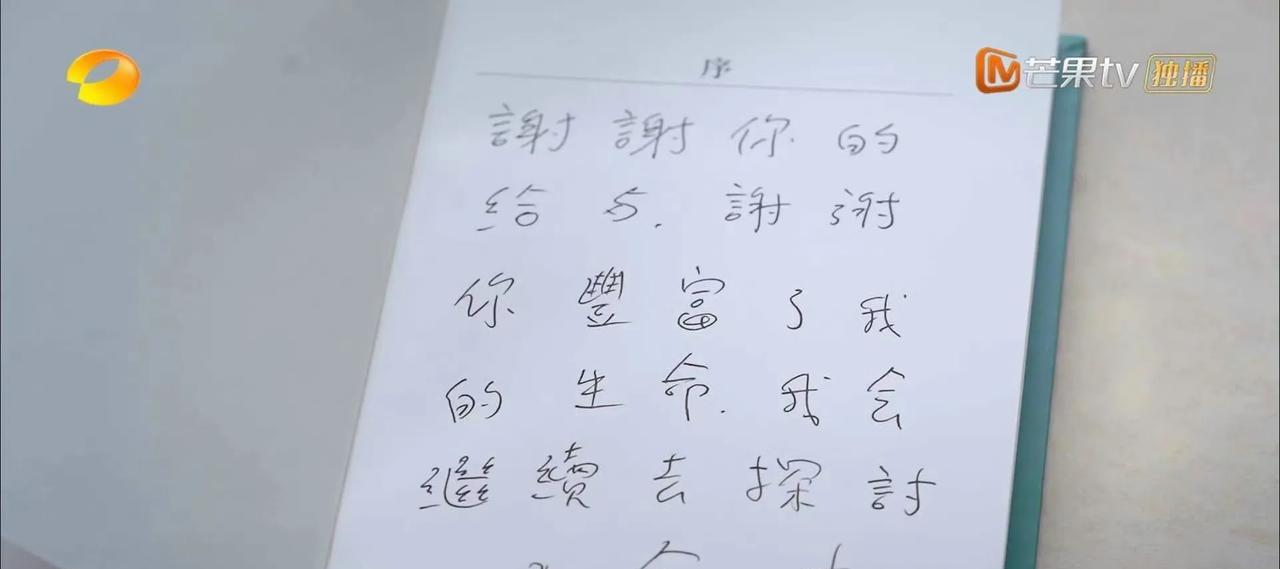 芒果tv 独播
序
謝謝你的
给与.謝谢
你豐富了我
的生命.我会
繼續去探討